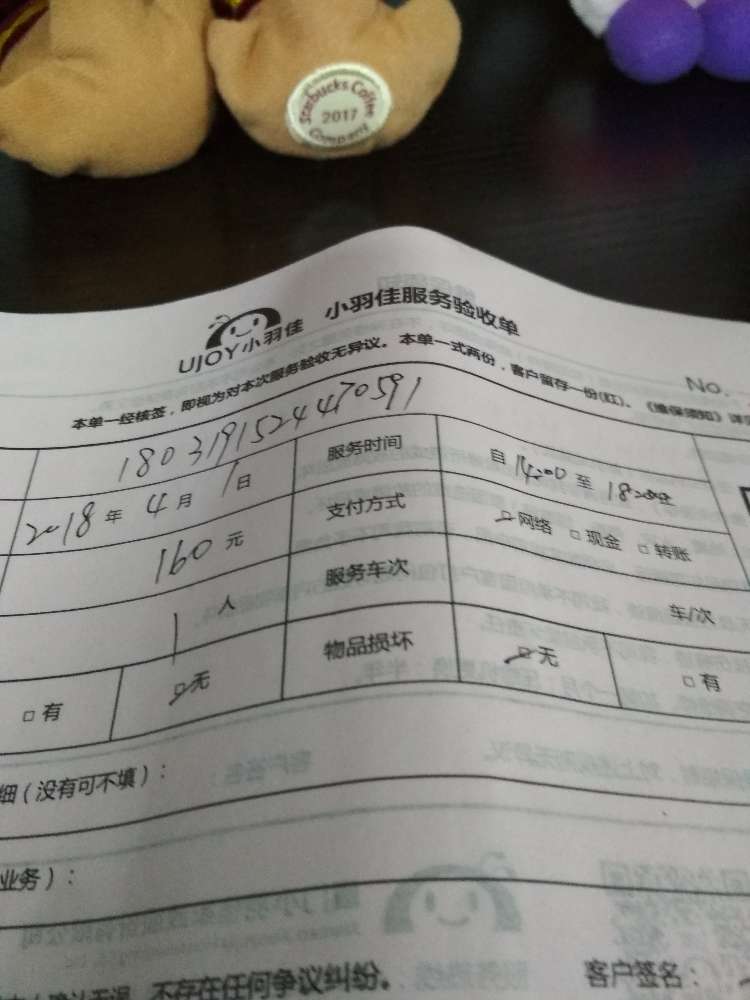 Starbucks Coffee
2017
Company
UJOY小羽佳 小羽佳服务验收单
No.
本单一经核签，即视为对本次服务验收无异议。本单一式两份，客户留存一份(红)、《维保须知》详
180319152444470591
2018年4月1日 服务时间 自14:00至18:00
160元 支付方式 网络 □现金 □转账
1人 服务车次 车/次
□有 □无 物品损坏 □无 □有
细（没有可不填）：
业务）：
不存在任何争议纠纷。 客户签名：